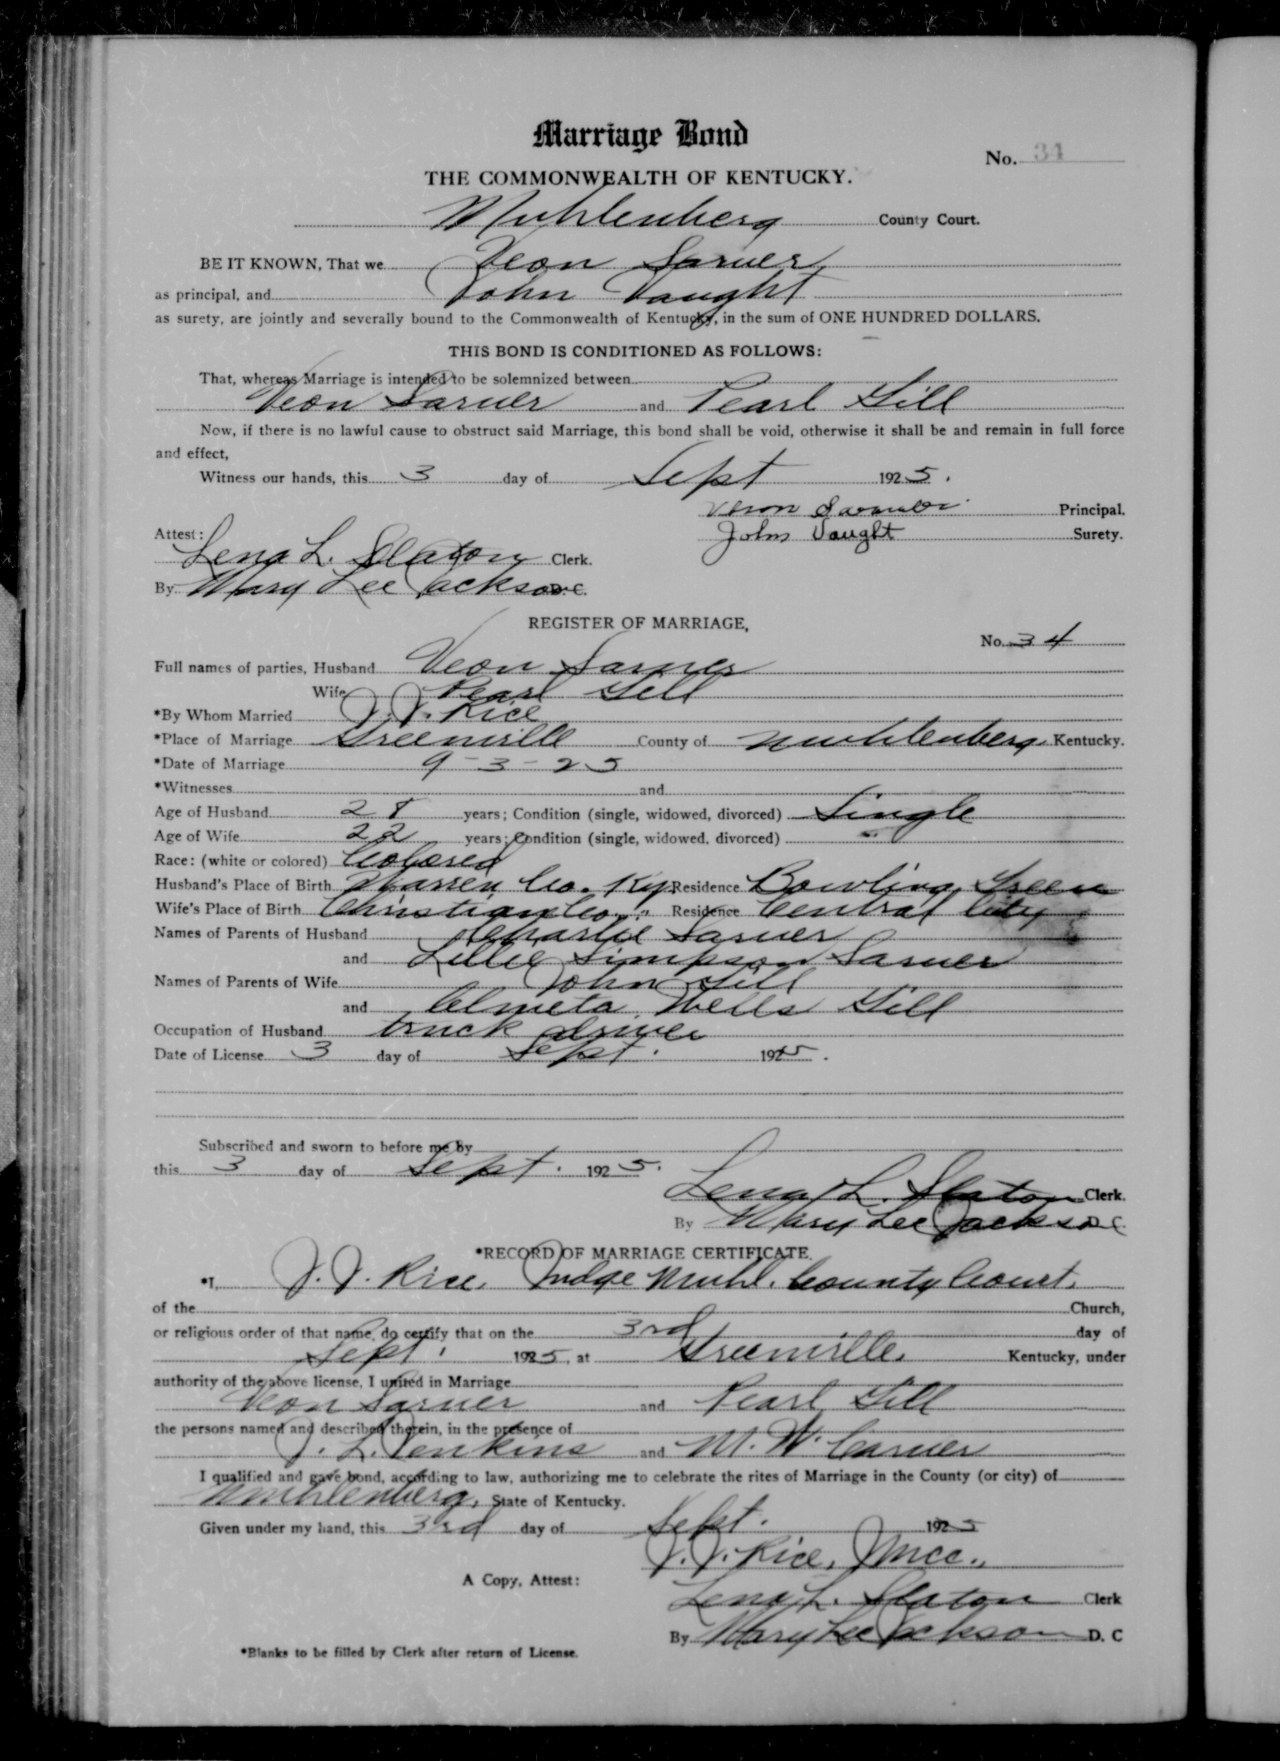 Marriage Bond
No. 34
THE COMMONWEALTH OF KENTUCKY.
Muhlenberg County Court.
BE IT KNOWN, That we Veon Sarver
as principal, and John Vaught
as surety, are jointly and severally bound to the Commonwealth of Kentucky, in the sum of ONE HUNDRED DOLLARS.
THIS BOND IS CONDITIONED AS FOLLOWS:
That, whereas Marriage is intended to be solemnized between
Veon Sarver and Pearl Gill
Now, if there is no lawful cause to obstruct said Marriage, this bond shall be void, otherwise it shall be and remain in full force
and effect,
Witness our hands, this 3 day of Sept 1925.
Principal.
Attest: John Vaught Surety.
Lena L. Slaton Clerk.
By Mary Lee Jackson D.C.
REGISTER OF MARRIAGE,
No. 34
Full names of parties, Husband Veon Sarver
Wife Pearl Gill
*By Whom Married J. J. Rice
*Place of Marriage Greenville County of Muhlenberg, Kentucky.
*Date of Marriage 9-3-25
*Witnesses and
Age of Husband 28 years; Condition (single, widowed, divorced) Single
Age of Wife 22 years; Condition (single, widowed, divorced) "
Race: (white or colored) Colored
Husband's Place of Birth Warren Co. Ky. Residence Bowling Green
Wife's Place of Birth Christian Co., " Residence Central City
Names of Parents of Husband Charlie Sarver
and Lillie Simpson Sarver
Names of Parents of Wife John Gill
and Almeta Wells Gill
Occupation of Husband truck driver
Date of License 3 day of Sept. 1925.
Subscribed and sworn to before me by
this 3 day of Sept. 1925.
Lena L. Slaton Clerk.
By Mary Lee Jackson D.C.
*RECORD OF MARRIAGE CERTIFICATE.
*I, J. J. Rice, Judge Muhl. County Court,
of the Church,
or religious order of that name, do certify that on the 3rd day of
Sept. 1925, at Greenville, Kentucky, under
authority of the above license, I united in Marriage
Veon Sarver and Pearl Gill
the persons named and described therein, in the presence of
J. L. Jenkins and M. W. Carver
I qualified and gave bond, according to law, authorizing me to celebrate the rites of Marriage in the County (or city) of
Muhlenberg, State of Kentucky.
Given under my hand, this 3rd day of Sept. 1925
J. J. Rice, JMCC.,
A Copy, Attest:
Lena L. Slaton Clerk
By Mary Lee Jackson D. C
*Blanks to be filled by Clerk after return of License.